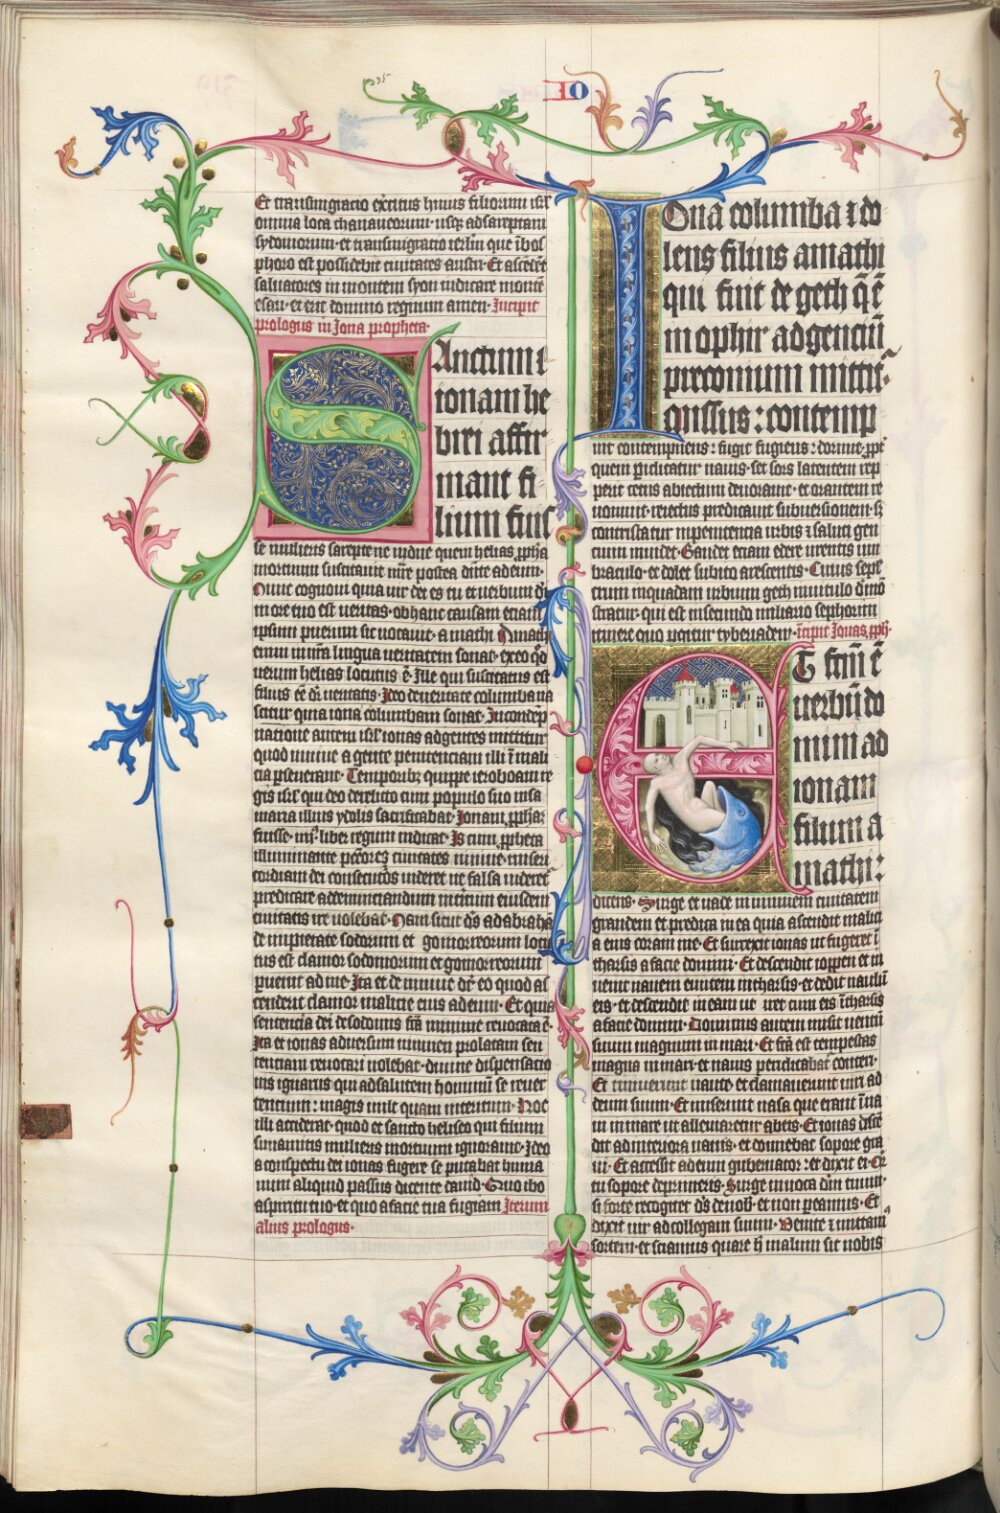 IO
Et transmigracio exercitus huius filiorum isrl
omnia loca chananeorum · usque ad sareptam
sydoniorum · et transmigracio ierlm que i bos
phoro est possidebit civitates austri · Et ascedet
salvatores in montem syon iudicare monte
esau · et erit domino regnum amen · Incipit
prologus in Iona propheta ·
Sanctum i
ionam he
brei affir
mant fi
lium fuis
se mulieris sareptene vidue quem helias ppha
mortuum suscitavit mre postea dicte ad eum ·
Nunc cognovi quia vir dei es tu et verbum di
in ore tuo est veritas · ob hanc causam etiam
ipsum puerum sic vocavit · amathi
enim in nra lingua veritatem sonat · et ex eo qd
verum helias locutus e · Ille qui suscitatus est
filius e dr veritatis · Ideo de veritate columba na
scitur quia iona columbam sonat · In condep
natione autem isrl ionas ad gentes mittitur
quod ninive a gente penitenciam illi i mali
cia perseverant · Temporibz quippe ieroboam re
gis isrl qui deo derelicto cum populo suo in sa
maria illius ydolis sacrificabat · Ionam ppham
fuisse · liber regum indicat · Is cum ppheta
illuminante civitates ninive miseri
cordiam dei consecutos videret ne falsa videret
predicare ad denunciandum interitum eiusdem
civitatis ire nolebat · Nam sicut ds ad abraha
de impietate sodomorum et gomorreorum locu
tus est clamor sodomorum et gomorreorum
pvenit ad me · Ita et de ninive dr eo quod as
cenderit clamor malicie eius ad eum · Et quia
sentencia dei de sodomis fra ninive revocata e ·
Ita et ionas adversum niniven prolatam sen
tentiam revocari nolebat · divine dispensatio
nis ignarus qui ad salutem hominum se rever
sentium : magis vult quam interitum · Hoc
illi acciderat · quod et sancto heliseo qui filium
sunamitis mulieris mortuum ignoravit · Ideo
a conspectu dei ionas fugere se putabat huma
num aliquid passus dicente david · Quo ibo
a spiritu tuo · et quo a facie tua fugiam Iterum
alius prologus ·
Iona columba & do
lens filius amathi
qui fuit de geth q e
in ophir ad genciu
preconium mitti
missus : contemp
nit contempnens : fugit fugiens : dormit · ppt
quem periclitatur navis · set sors latentem rep
perit cetus abiectum devoravit · et orantem re
vomuit · reiectus predicavit subversionem · &
contristatur in penitencia urbis & saluti gen
cium invidet · Gaudet etiam edere virentis um
braculo · et dolet subito arescentis · Cuius sepl
crum in quadam urbium geth municulo dmo
stratur · qui est in secundo miliario sephorim
itinere quo pergitur tyberiadem · icipit Ionas pph ·
ET fcm e
verbu do
mini ad
ionam
filium a
mathi :
dicens · Surge et vade in niniven civitatem
grandem et predica in ea quia ascendit malicia
a eius coram me · Et surrexit ionas ut fugeret i
tharsis a facie domini · Et descendit ioppen et in
venit navem euntem in tharsis · et dedit naulum
eis · et descendit in eam ut iret cum eis i tharsis
a facie domini · Dominus autem misit ventu
suum magnum in mari · Et fca est tempestas
magna in mari · et navis periclitabat conteri ·
Et timuerunt naute · et clamaverunt viri ad
deum suum · Et miserunt vasa que erant i na
vi in mare ut alleviaretur ab eis · Et ionas disce
dit ad interiora navis · et dormiebat sopore gra
vi · Et accessit ad eum gubernator : et dixit ei · Cr
tu sopore deprimeris · Surge invoca dm tuum ·
si forte recogitet ds de nob · et non pereamus · Et
dixit vir ad collegam suum · Venite & mittam
sortem · et sciamus quare h malum sit nobis